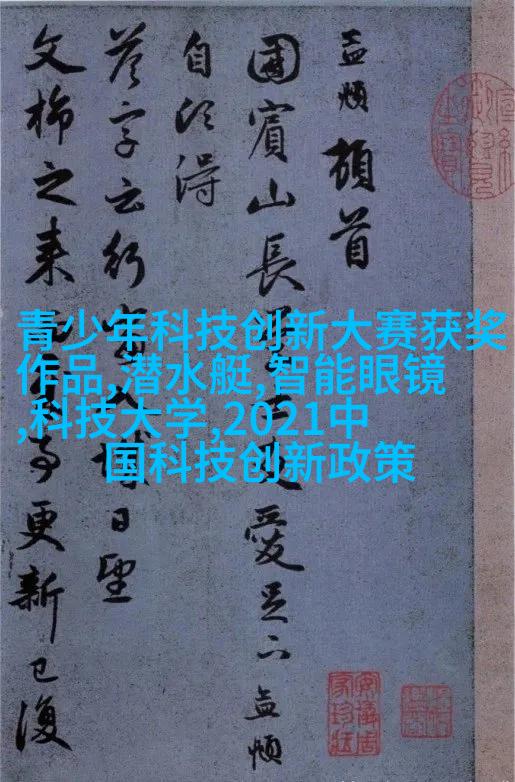 孟頫頓首
國賓山長愛足下孟頫
自頃得
答字云行日望
文旆之来更新已復
青少年科技创新大赛获奖
作品,潜水艇,智能眼镜
,科技大学,2021中
国科技创新政策